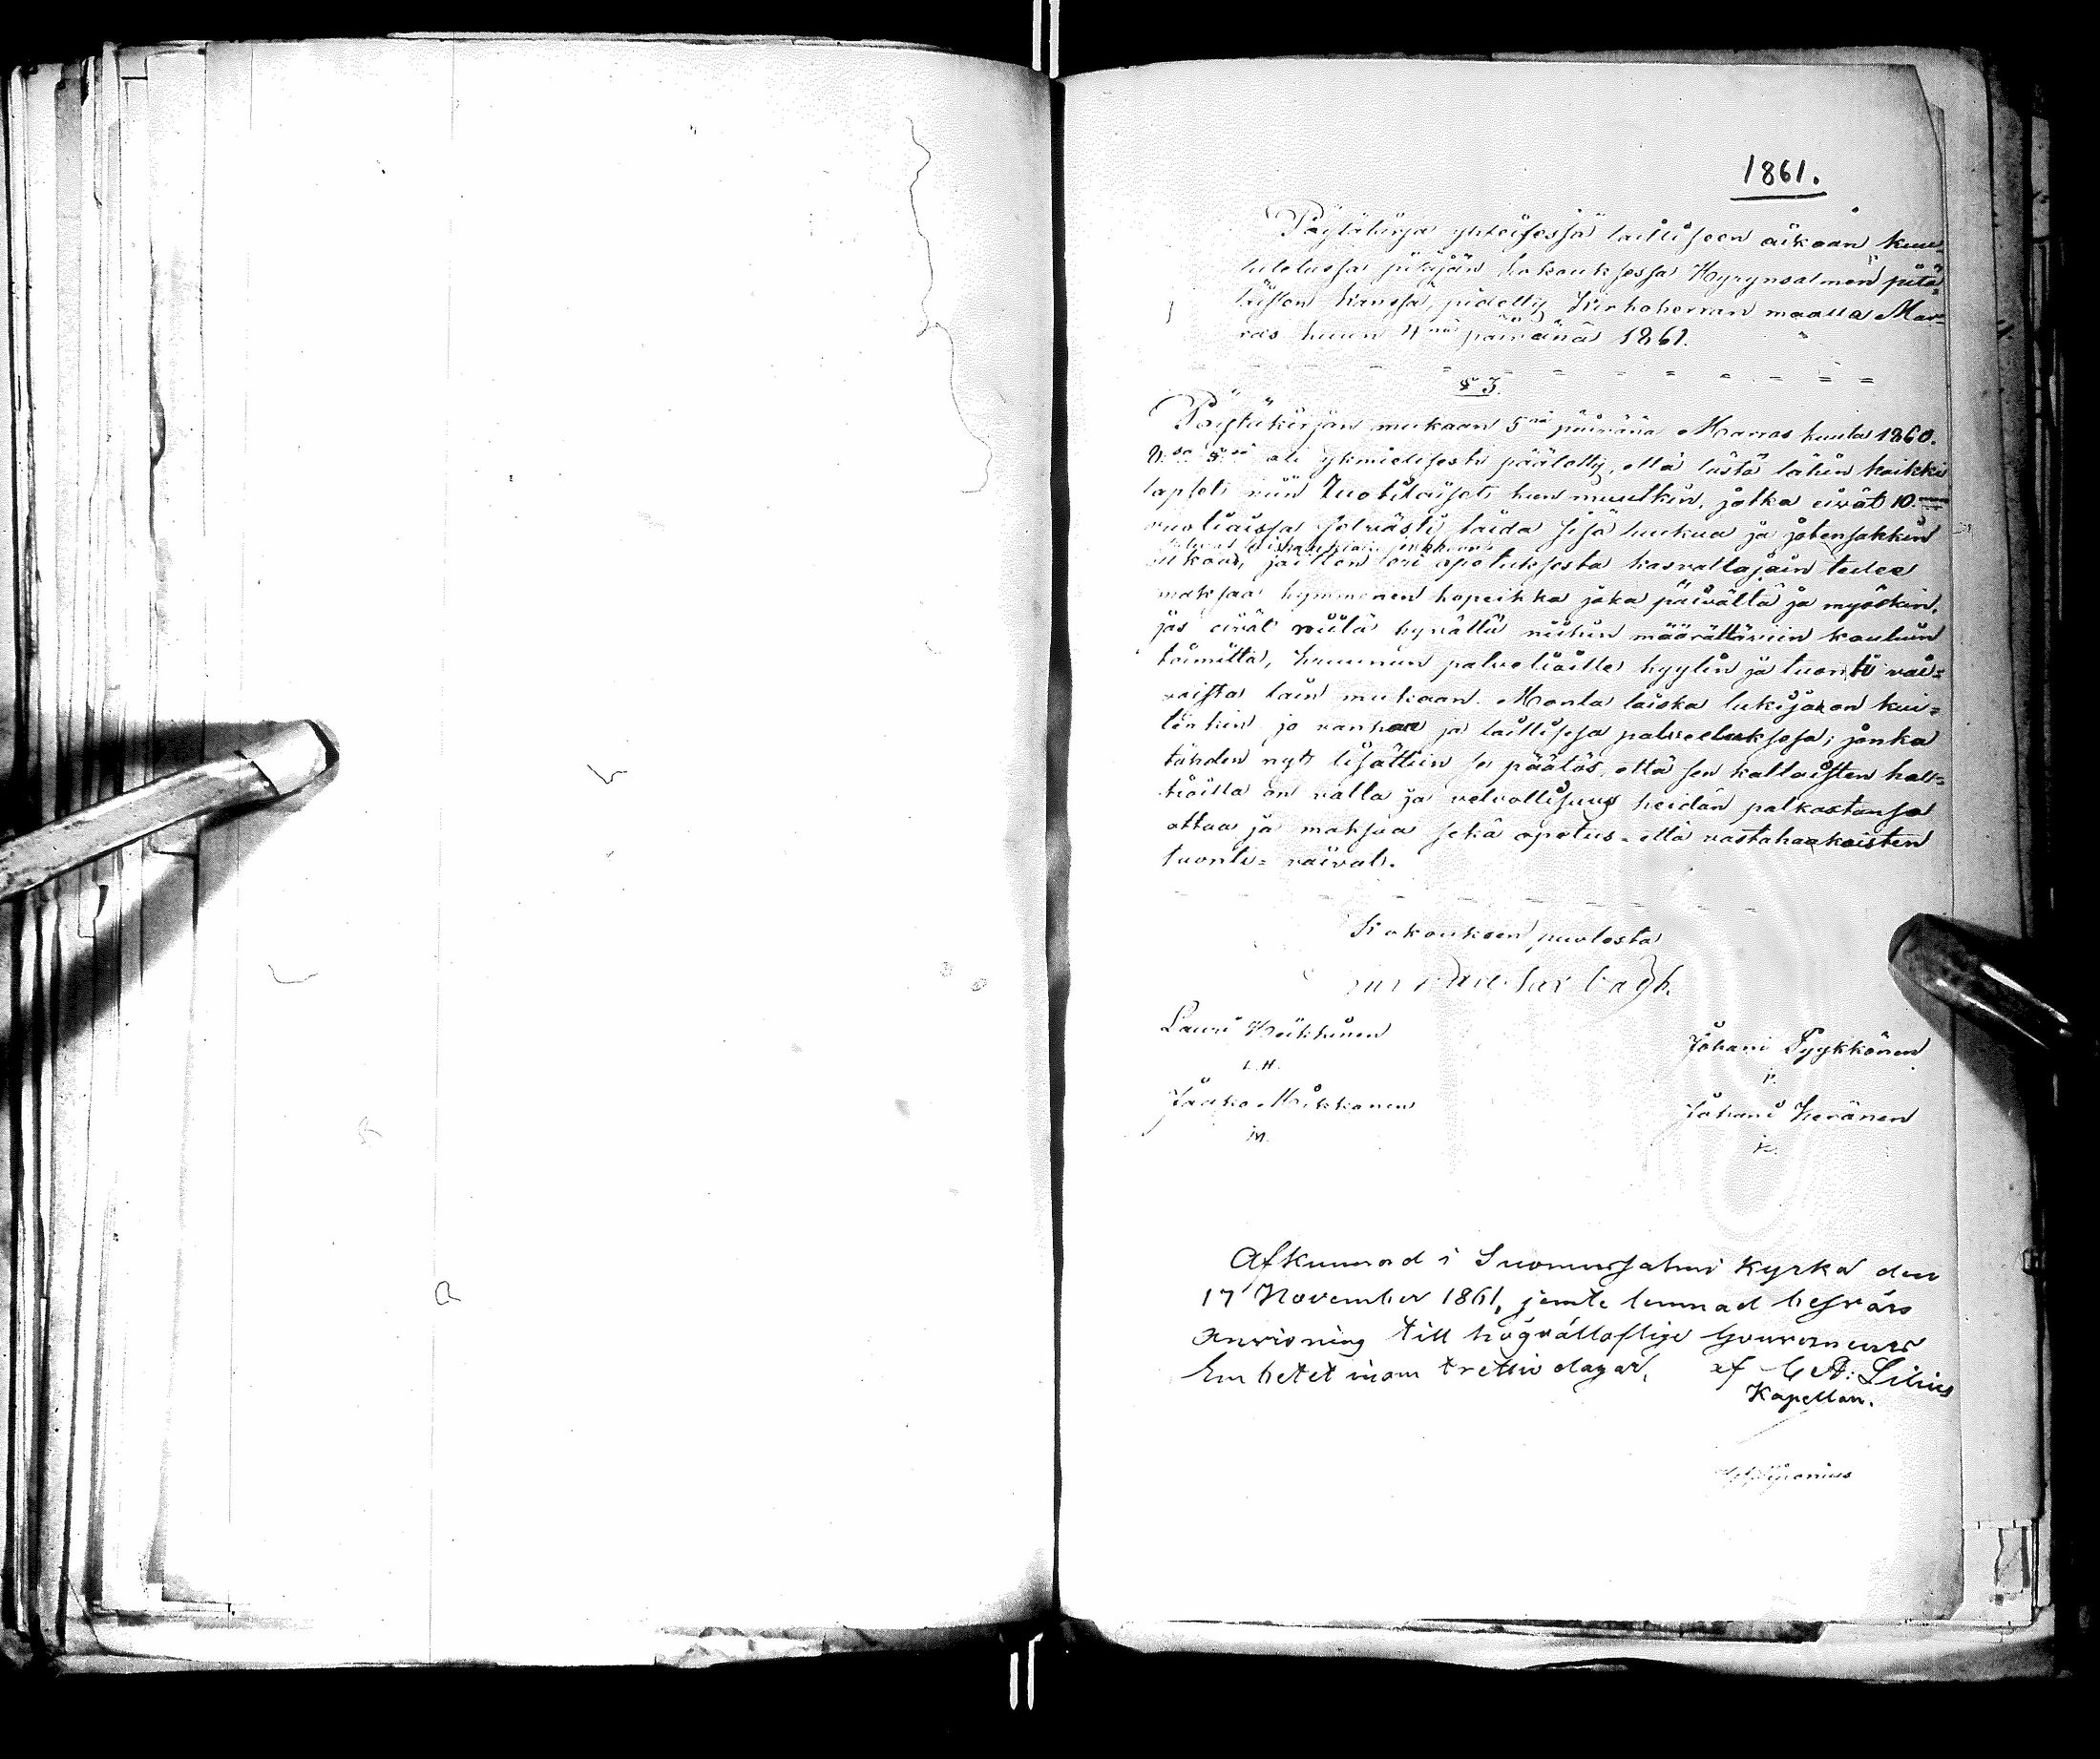 1861.
Pöytäkirja yhteisessä lailliseen aikaan kuu-
lutetussa pitäjän kokouksessa Hyrynsalmen pitä-
läisten kanssa, pidetty Kirkoherran maalla Mar-
ras kuun 4nä päivänä 1861.
§ 3.
Pöytäkirjan mukaan 5nä päivänä Marras kuuta 1860.
oli ykmielisesti päätetty, että tästä lähin kaikki
lapset niin kuin muutkin, jotka eivät 10
vuotiaissa selvästi taida sisä lukua ja jotensakkin
ulkoa, jaitten opetuksesta kasvattajain tulee
maksaa kymmenen kopeikka joka päivältä ja myöskin,
jos eivät niitä hyvällä niihin määrättäviin kouluin
toimitta, kruunun palvelioille kyytin ja tuonti vai-
voista lain mukaan. Monta laiska lukijaa on kui-
tenkin jo vanhaa ja laillisesa palveluksesa; jonka
tähden nyt lisättiin se päätös, että sen kallaisten hal-
tioilla on valta ja velvollisuus heidän palkastansa
ottaa ja maksaa sekä opetus- että vastahaakaisten
tuonti- vaivat.
Kokouksen puolesta
Lauri Heikkinen
L.H.
Juhani Tyykkönen
Jaako Mikkonen
M.
Juhani Keränen
K.
Afkunnad i Suomussalmi kyrka den
17 November 1861, jemte lemnad besvärs
anvisning till högvälloflige Gouverneurs
Embetet inom trettio dagar, af C A: Lilius
Kapellan.